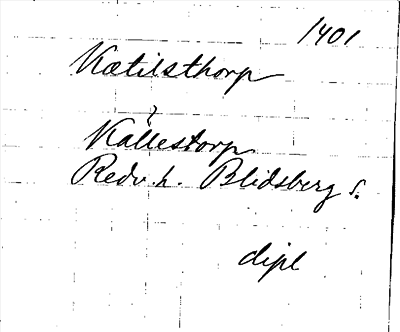 1401
Kætilsthorp
?
Källestorp
Redv. h. Blidsberg s.
dipl